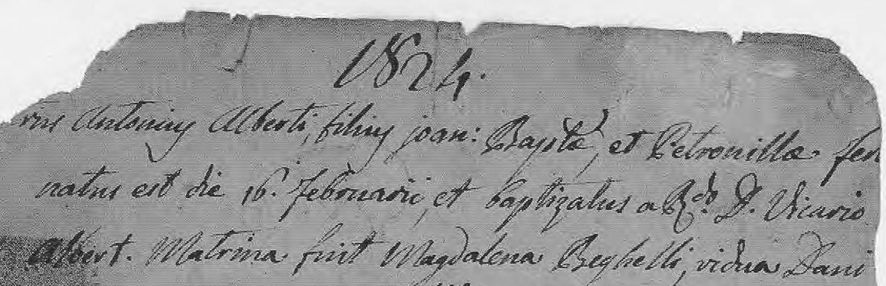 1824.
rus Antonius Alberti, filius joan: Baptæ, et Petronillæ fer
natus est die 16. februarii, et baptizatus a Rdo. D. Vicario
Albert. Matrina fuit Magdalena Beghelli, vidua Dani